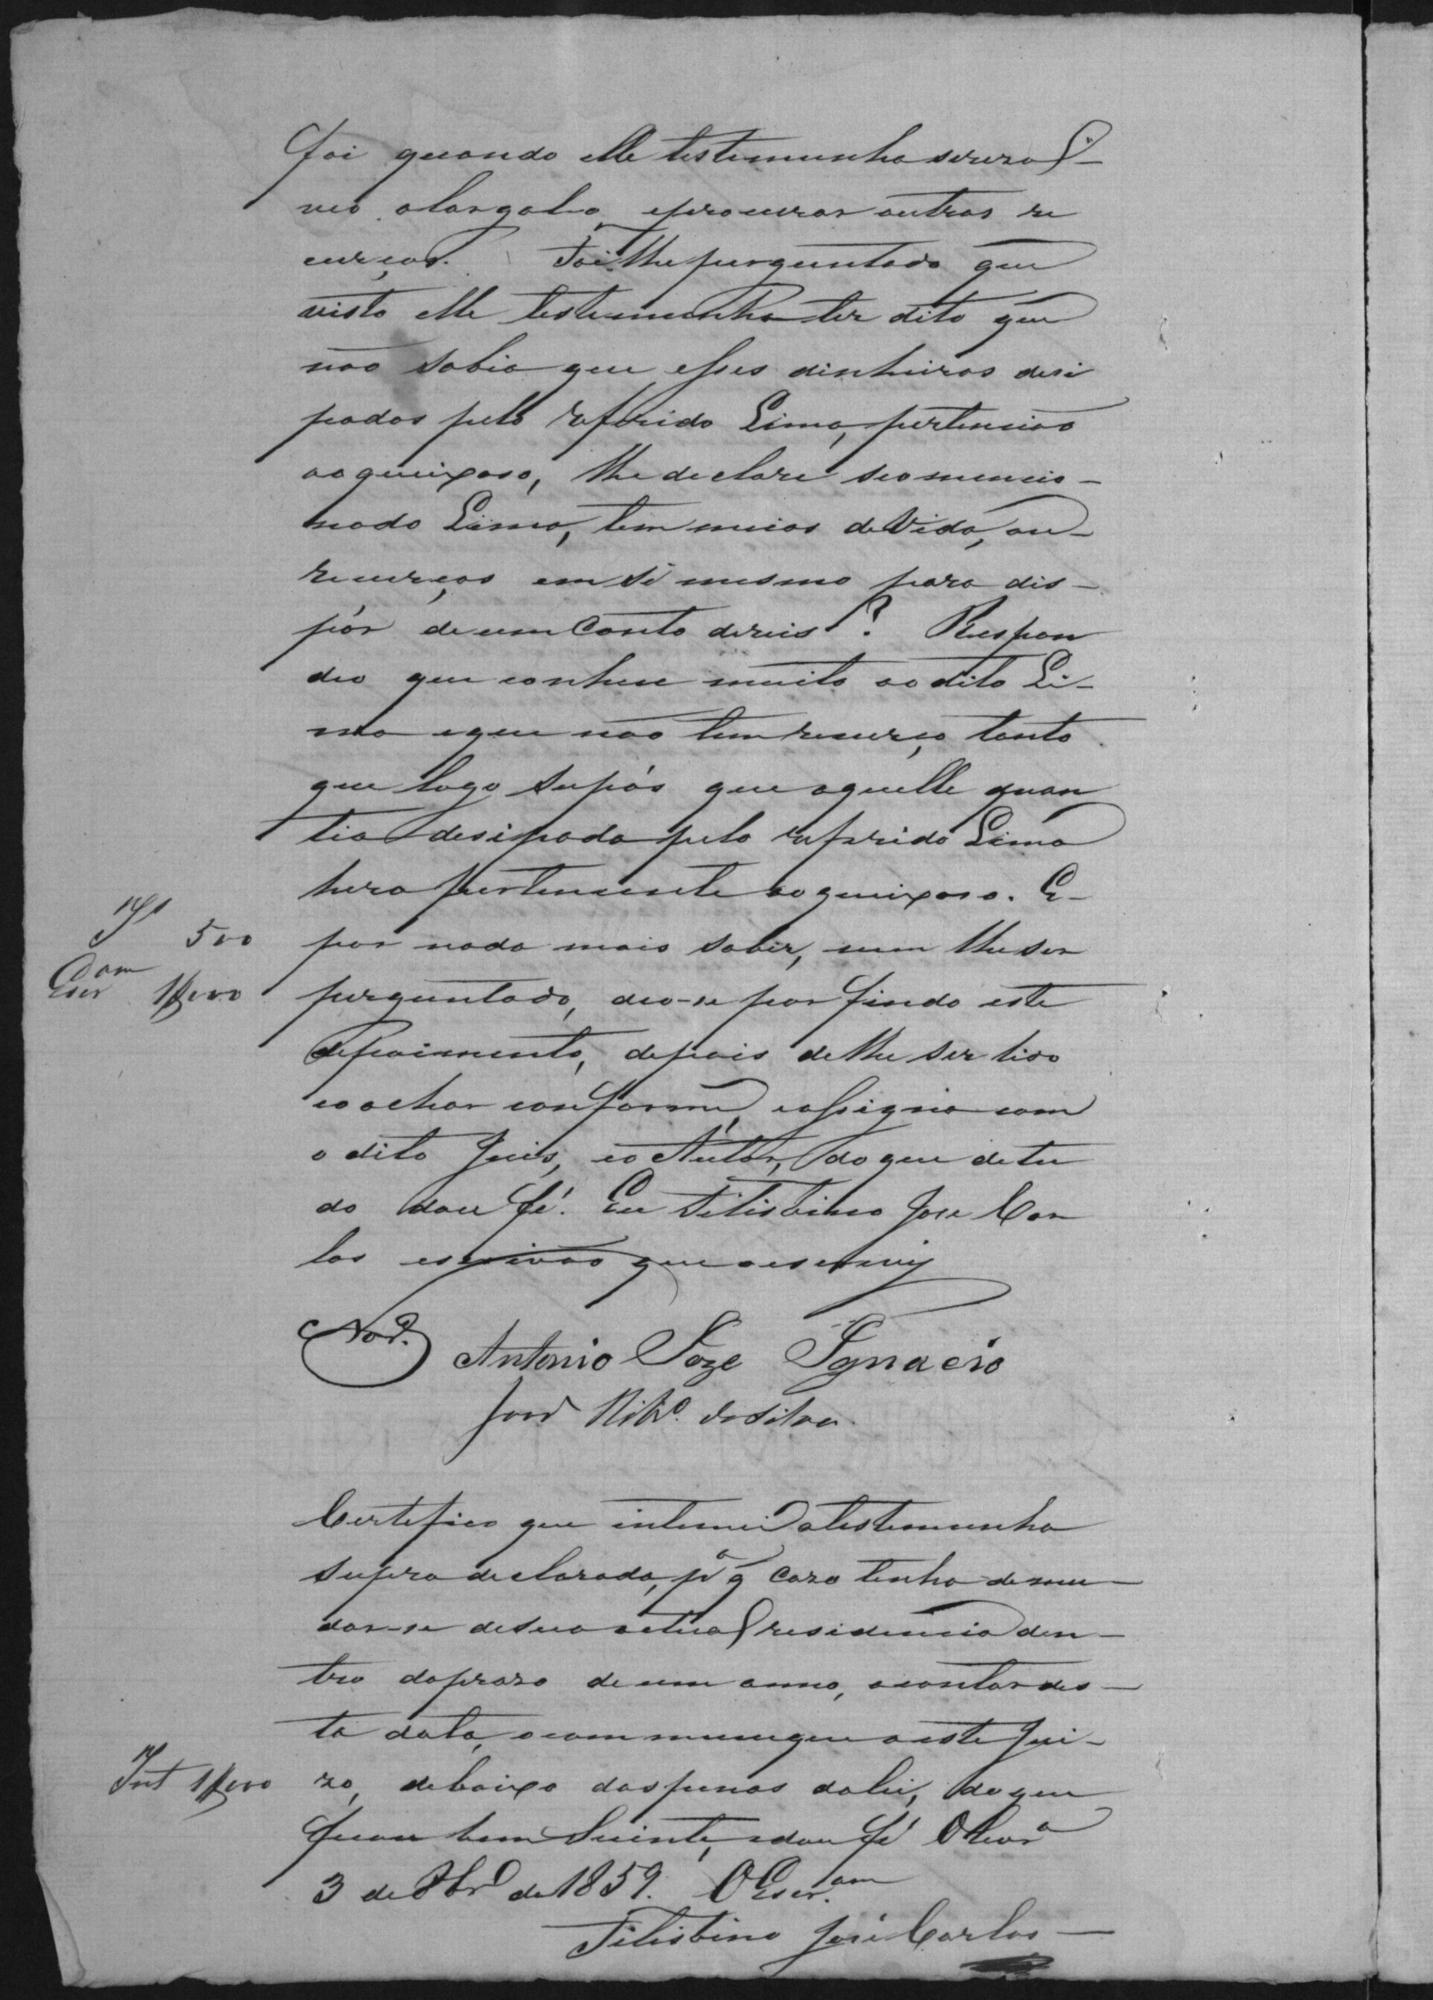 foi quando elle testemunha seresol-
veo alargalo, eprocurar outros re
curços. Foi lhe perguntado que
visto elle testemunha ter dito que
não sabia que esses dinheiros desi
pados pelo referido Lima, pertencião
aoqueixoso, lhe declare seomencio-
nado Lima, tem meios deVida, ou-
recurços em si mesmo para dis-
pôr deum Conto dereis? Respon
deo que conhece muito ao dito Li-
ma eque não tem recurço tanto
que logo supôs que aquelle quan
tia desipada pelo referido Lima
hera pertencente aoqueixoso. E-
por nada mais saber, nem lhe ser
perguntado, deo-se por findo este
depoimento, depois delhe ser lido
eoachar conforme, eassigna com
o dito Juis, eo Autor, doque detu
do dou fé. Eu Felisbino Jose Car
los escrivão que oescrevy
Antonio Joze Ignacio
João Ribro. da Silva
Js 500
Escram 1$000
Certefico que intimei atestemunha
supra declarada, pa q̃ cazo tenha demu-
dar-se desua actual residencia den-
tro doprazo de um anno, acontar des-
ta data, ocommunique aeste Jui-
zo, debaixo das penas dalei, do que
ficou bem Sciente, edou fé
3 de 8bro de 1859. O Escram
Felisbino José Carlos
Int 1$000